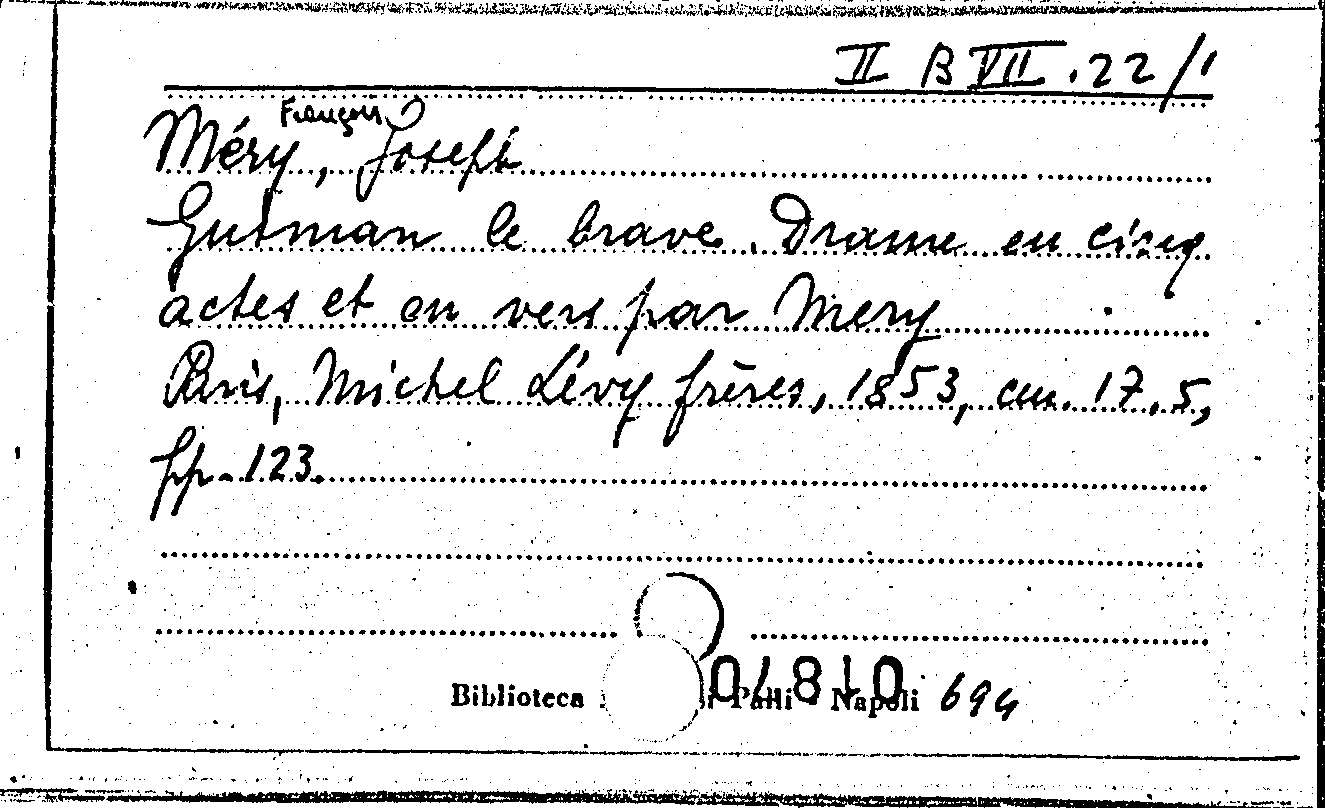 II B VII . 22/1
François
Méry, Joseph
Gusman le brave. Drame en cinq
actes et en vers par Méry
Paris, Michel Lévy frères, 1853, cm. 17.5,
pp. 123.
Biblioteca Napoli 694